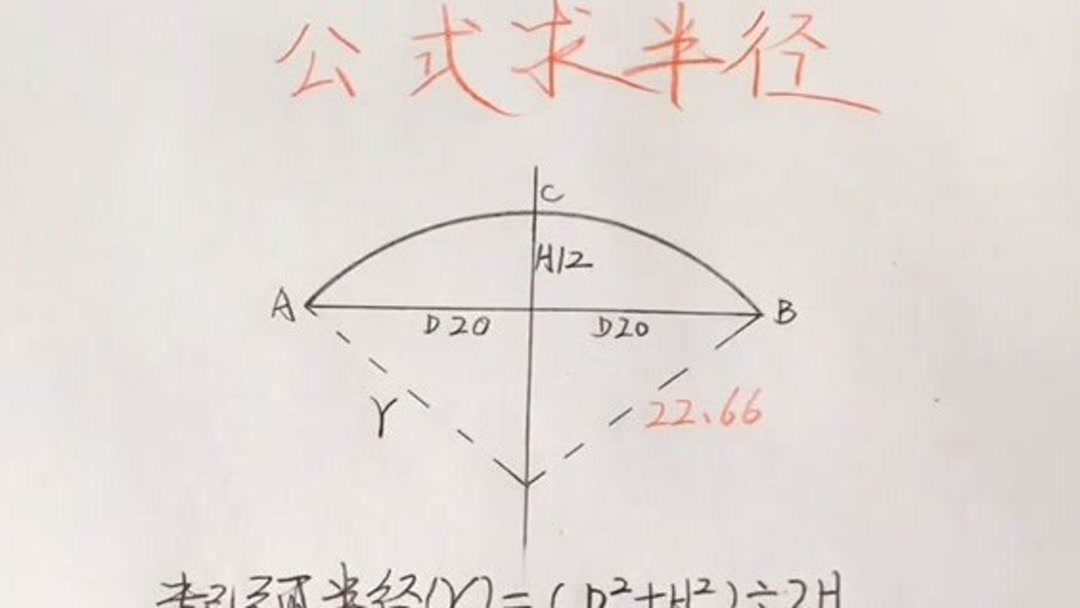 公式求半径
C
H12
A
B
D20
D20
r
22.66
半径(r)=(D²+H²)÷2H